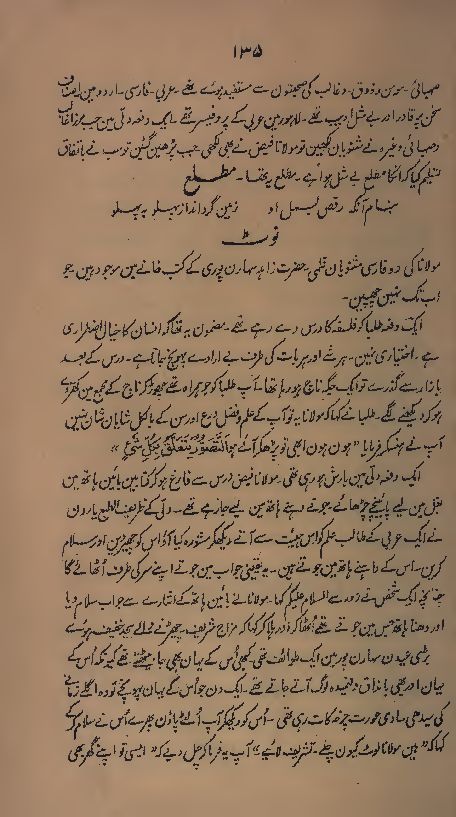 ۱۳۵
صہبائی۔ مومن و ذوق۔ و غالب کی صحبتون سے مستفید ہوئے تھے۔ عربی۔ فارسی۔ اردو مین
سخن پہ قادر اور بے مثل ادیب تھے۔ لاہور مین عربی کے پروفیسر تھے۔ ایک دفعہ دلی مین جب مرزا غالب
وصہبائی وغیرہ نے مثنویان لکھین تو مولانا فیض نے بھی لکھی جب پڑھین گئین تو سب نے باتفاق
تسلیم کیا کہ انکا مطلع بے مثل ہوا ہے۔ مطلع یہ تھا۔ مطلع
بنام آنکہ رقص بسمل او زمین گرد انداز پہلو بہ پہلو
نوٹ
مولانا کی دو فارسی مثنویان قلمی۔ حضرت زاہد سہارن پوری کے کتب خانے مین موجود ہین جو
اب تک نہین چھپین۔
ایک دفعہ طلبا کو فلسفہ کا درس دے رہے تھے۔ مضمون یہ تھا کہ انسان کا خیال اضطراری
ہے۔ اختیاری نہین۔ ہر شے اور ہر بات کی طرف بے ارادے پہونچ جاتا ہے۔ درس کے بعد
بازار سے گذرے تو ایک جگہ ناچ ہو رہا تھا۔ آپ طلبا کو جو ہمراہ تھے چھوڑ کر ناچ کے مجمع مین کھڑے
ہو کر دیکھنے لگے۔ طلبا نے کہا کہ مولانا یہ تو آپ کے علم و فضل و ورع اور سن کے بالکل شایان شان نہین
آپ نے ہنسکر فرمایا ”ہون ہون ابھی تو پڑھکر آئے ہو اَلتَّصَوُّرُ یَتَعَلَّقُ بِکُلِّ شَیْءٍ“
ایک دفعہ دلی مین بارش ہو رہی تھی۔ مولانا فیض درس سے فارغ ہو کر کتابین بائین ہاتھ مین
بغل مین لیے پائینچے چڑھائے۔ جوتے دہنے ہاتھ مین لیے جا رہے تھے۔ دلی کے ظریف الطبع یارون
نے ایک عربی کے طالب علم کو اس ہیئت سے آتے دیکھکر مشورہ کیا آؤ اس کو چھیڑین اور سلام
کرین۔ اس کے داہنے ہاتھ مین جوتے ہین۔ یہ یقینی جواب مین جوتے اپنے سر کی طرف اُٹھائے گا
چنانچہ ایک شخص نے زور سے السلام علیکم کہا۔ مولانا نے بائین ہاتھ کے اشارے سے جواب سلام دیا
اور دھنا ہاتھ جس مین جوتے تھے اُٹھا کر اور ہلا کر کہا کہ مزاج شریف۔ چھیڑنے والے بیحد خفیف ہوئے
بڑھی عیدن سہارن پور مین ایک طوائف تھی کبھی اُس کے یہان بھی جا بیٹھتے تھے کیونکہ اُس کے
یہان اور بھی بامذاق و فہمیدہ لوگ آتے جاتے تھے۔ ایک دن جو اُس کے یہان پہونچے تو وہ اگلے زمانے
کی سیدھی سادی عورت چرخہ کات رہی تھی۔ اُس کو دیکھکر آپ اُلٹے پاؤن پھرے اُس نے سلام کر کے
کہا کہ ”ہین مولانا لوٹ کیون چلے۔ تشریف لائیے“ آپ یہ فرما کر چل دیے کہ ”ایسی تو اپنے گھر بھی